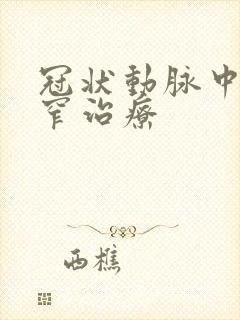 冠状動脉中
窄治療
西樵